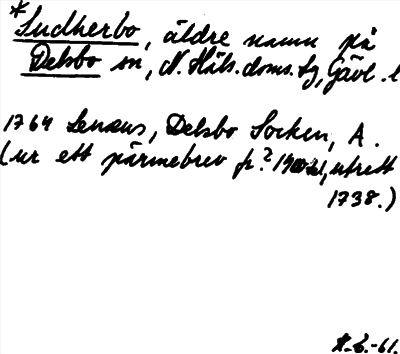 *Sudherbo, äldre namn på
Delsbo sn, N. Häls. doms. sg, Gävl. l
1764 Lenæus, Delsbo Socken, A.
(ur ett pärmebrev fr. ? utrett
1738.)
-61.